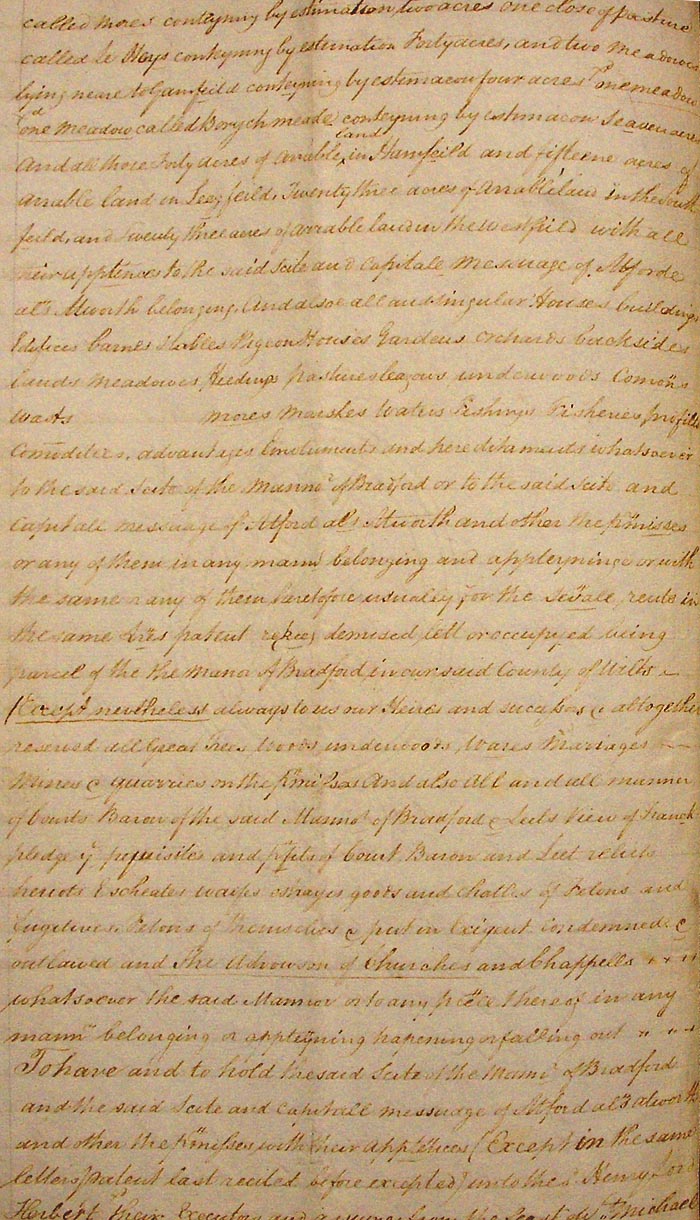 called mores conteyning by estimation, two acres one close of pasture
called le Heys conteyning by estimation Forty acres, and two meadows
lying neare to Hamfeild conteyning by estimacon four acres one meadow
one meadow called Borych meade conteyning by estimacon seaven acres
And all those Forty acres of arable land in Hamfeild and fifteene acres of
arrable land in Leeyfeild, Twenty three acres of arrable land in the South
feild, and twenty three acres of arrable land in the westfeild with all
their apptences to the said Scite and Capitale Messuage of Atforde
als Atworth belonging, And alsoe all and singular Houses buildings
Edifices barnes stables Pigeon Houses Gardens orchards backsides
lands meadowes Feedings pastures leazows underwoods Comons
wasts mores marshes waters Fishings Fisheries profitts
Comodities, advantages Emoluments and hereditaments whatsoever
to the said Scite of the Mannor of Bradford or to the said Scite and
Capitall messuage of Atford als Atworth and other the p̄misses
or any of them in any mann belonging and apperteyninge or with
the same or any of them heretofore usually for the sevrale rents in
the same lres patent demised lett or occupyed being
parcel of the the Manor of Bradford in our said County of Wilts
(Except nevertheless always to us our Heires and sucessors & altogether
reserved all Great Trees, Woods underwoods, Wares Mariages
Mines & quarries on the p̄misses And also All and all manner
of Courts Baron of the said Mannor of Bradford & Leets View of Franck
pledge & pquisites and pfits of Court Baron and Leet reliefs
heriots Escheates waifes estrayes goods and chattles of Felons and
fugitives, Felons of themselves & put in Exigent condemned &
outlawed and the Advowson of Churches and Chappells
whatsoever the said Mannor or to any p̄cell thereof in any
mann belonging or appteyning hapening or falling out
To have and to hold the said Scite of the Mann of Bradford
and the said Scite and Capitall messuage of Atford als atworth
and other the p̄misses with their apptences (Except in the same
letters patent last recited before excepted) unto the Henry Lord
Herbert their Executors and from the Feast of Michael